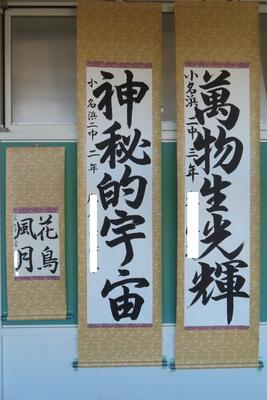 萬物生光輝
小名浜二中三年
神秘的宇宙
小名浜二中二年
花鳥
風月